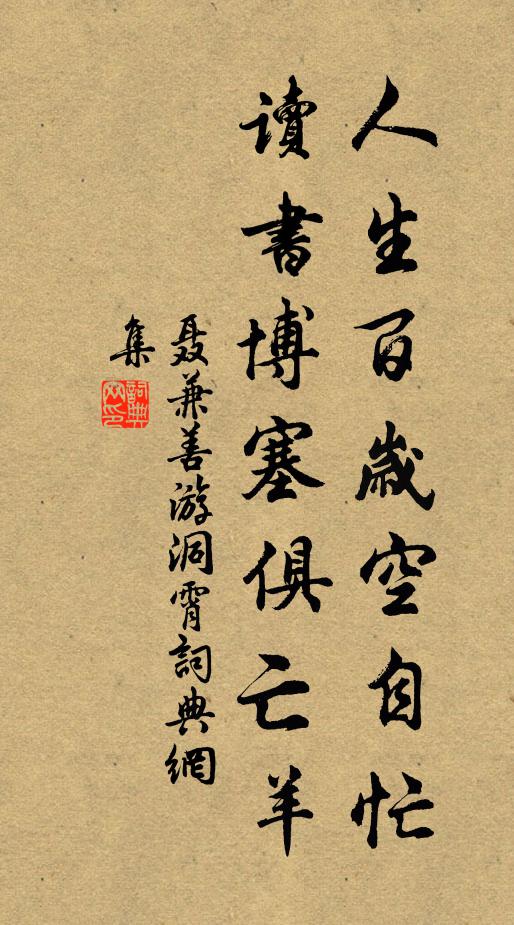 人生百歲空自忙
讀書博塞俱亡羊
聂兼善游洞霄詞典網
集
詞典網印